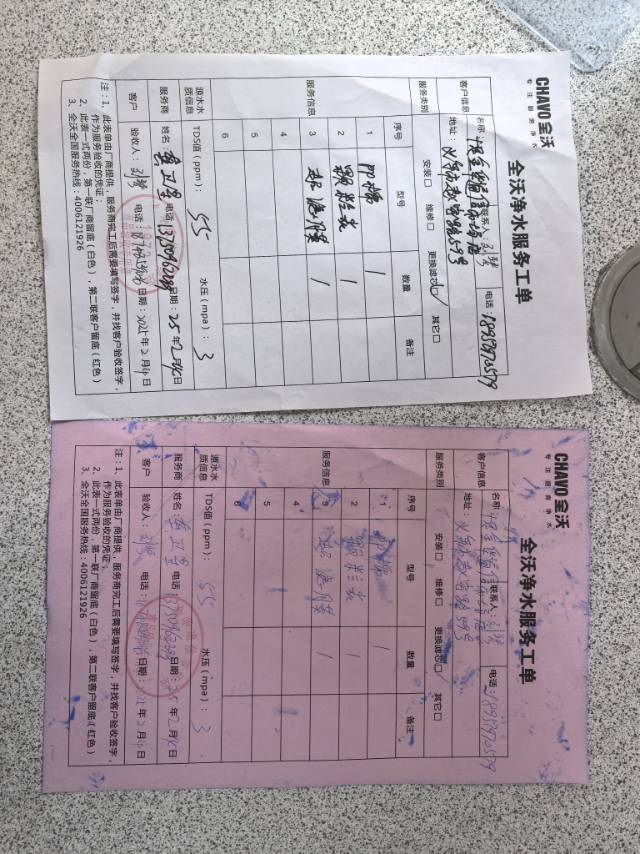 CHAVO全沃
专注厨房净水
全沃净水服务工单
客户信息
名称：
联系人：刘梦
电话：18957920579
地址：义乌市
59号
服务类别
安装□ 维修□ 更换滤芯□ 其它□
服务信息
序号 型号 数量 备注
1 PP棉 1
2 颗粒炭 1
3 超滤膜 1
4
5
6
源水水质信息
TDS值(ppm)： 55 水压(mpa)： 3
服务商 姓名： 卫星 电话： 日期：25年2月 日
客户 验收人：刘梦 电话： 日期：2025年2月 日
注：1、此表单由厂商提供，服务商完工后需要填写签字，并找客户验收签字，
作为服务验收的凭证；
2、此表一式两份，第一联厂商留底(白色)，第二联客户留底(红色)
3、全沃全国服务热线：4006121926
CHAVO全沃
专注厨房净水
全沃净水服务工单
客户信息
名称：
联系人：刘梦
电话：18957920579
地址：义乌市
59号
服务类别
安装□ 维修□ 更换滤芯□ 其它□
服务信息
序号 型号 数量 备注
1 PP棉 1
2 颗粒炭 1
3 超滤膜 1
4
5
6
源水水质信息
TDS值(ppm)： 55 水压(mpa)： 3
服务商 姓名： 卫星 电话： 日期：25年2月 日
客户 验收人：刘梦 电话： 日期：2025年2月 日
注：1、此表单由厂商提供，服务商完工后需要填写签字，并找客户验收签字，
作为服务验收的凭证；
2、此表一式两份，第一联厂商留底(白色)，第二联客户留底(红色)
3、全沃全国服务热线：4006121926